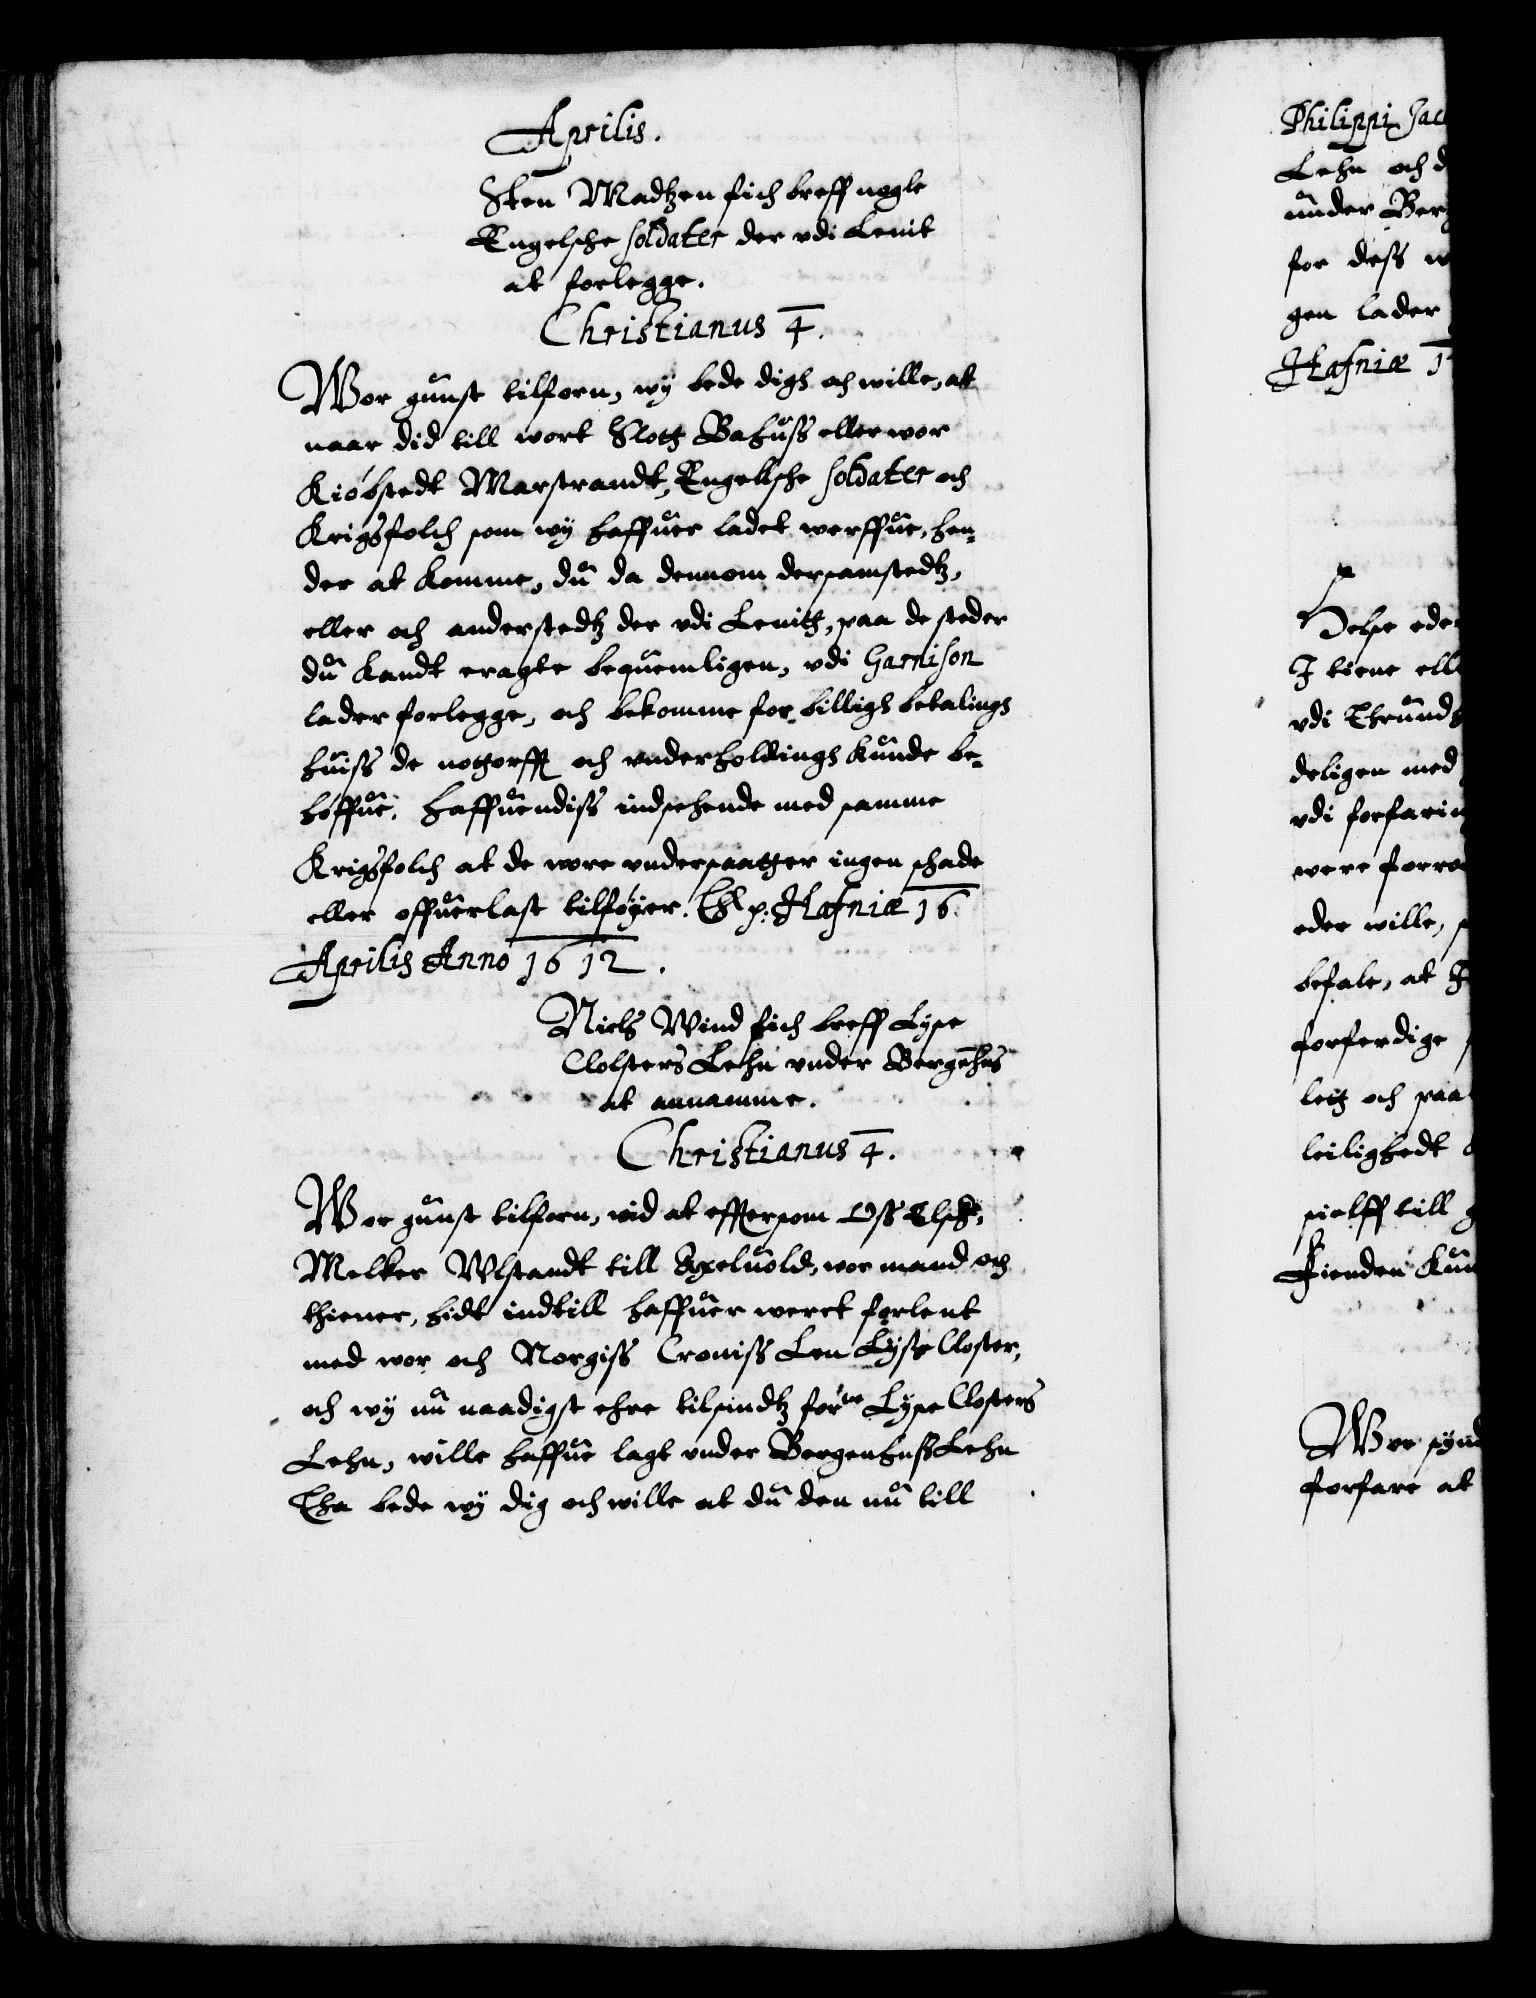 Aprilis.
Sten Madtzen fich breff nogle
Engelsche soldater der vdi Lenit
at forlegge.
Christianus 4.
Wor gunst tilforn, wy bede digh och wille, at
naar did till wort Slotth Bahuss eller wor
Kiøbstedt Marstrandt, Engelsche soldater och
Krigsfolch som wy haffuer ladet werffue, hen-
der at komme, du da dennom dersamstedtz,
eller och anderstedtz der vdi Lenith, paa de steder
du kandt eragte bequemligen, vdi Garnison
lader forlegge, och bekomme for billigh betalings
huiss de notthorfft och vnderholdingh kunde be-
høffue, haffuendiss indsehende med samme
Krigsfolch at de wore vndersaatther ingen schade
eller offuerlast tilføyer. Thl p: Hafniæ 16.
Aprilis Anno 1612.
Niels Wind fich breff Lyse
Closters Lehn vnder Bergenhus
at annamme.
Christianus 4.
Wor gunst tilforn, wid at efftersom Oss Elsch:
Melker Wlstandt till Axeluold, wor mand och
thiener, hidt indtill haffuer weret forlent
med wor och Norgiss Croniss Len Lysse Closter,
och wy nu naadigst ehre tilsindtz for:ne Lyse Closters
Lehn, wille haffue lagt vnder Bergenhuss Lehn
Tha bede wy dig och wille at du den nu till
Philippi Jac
Lehn och d
under Ber
for dess w
gen lader
Hafniæ 1
Helse eder
I tiene ell
vdi Thrund
deligen med
vdi forfarin
were forra
eder wille,
befale, at I
forferdige
leig och paa
leilighedt
sielff till
Fienden kun
Wor synd
forfare at